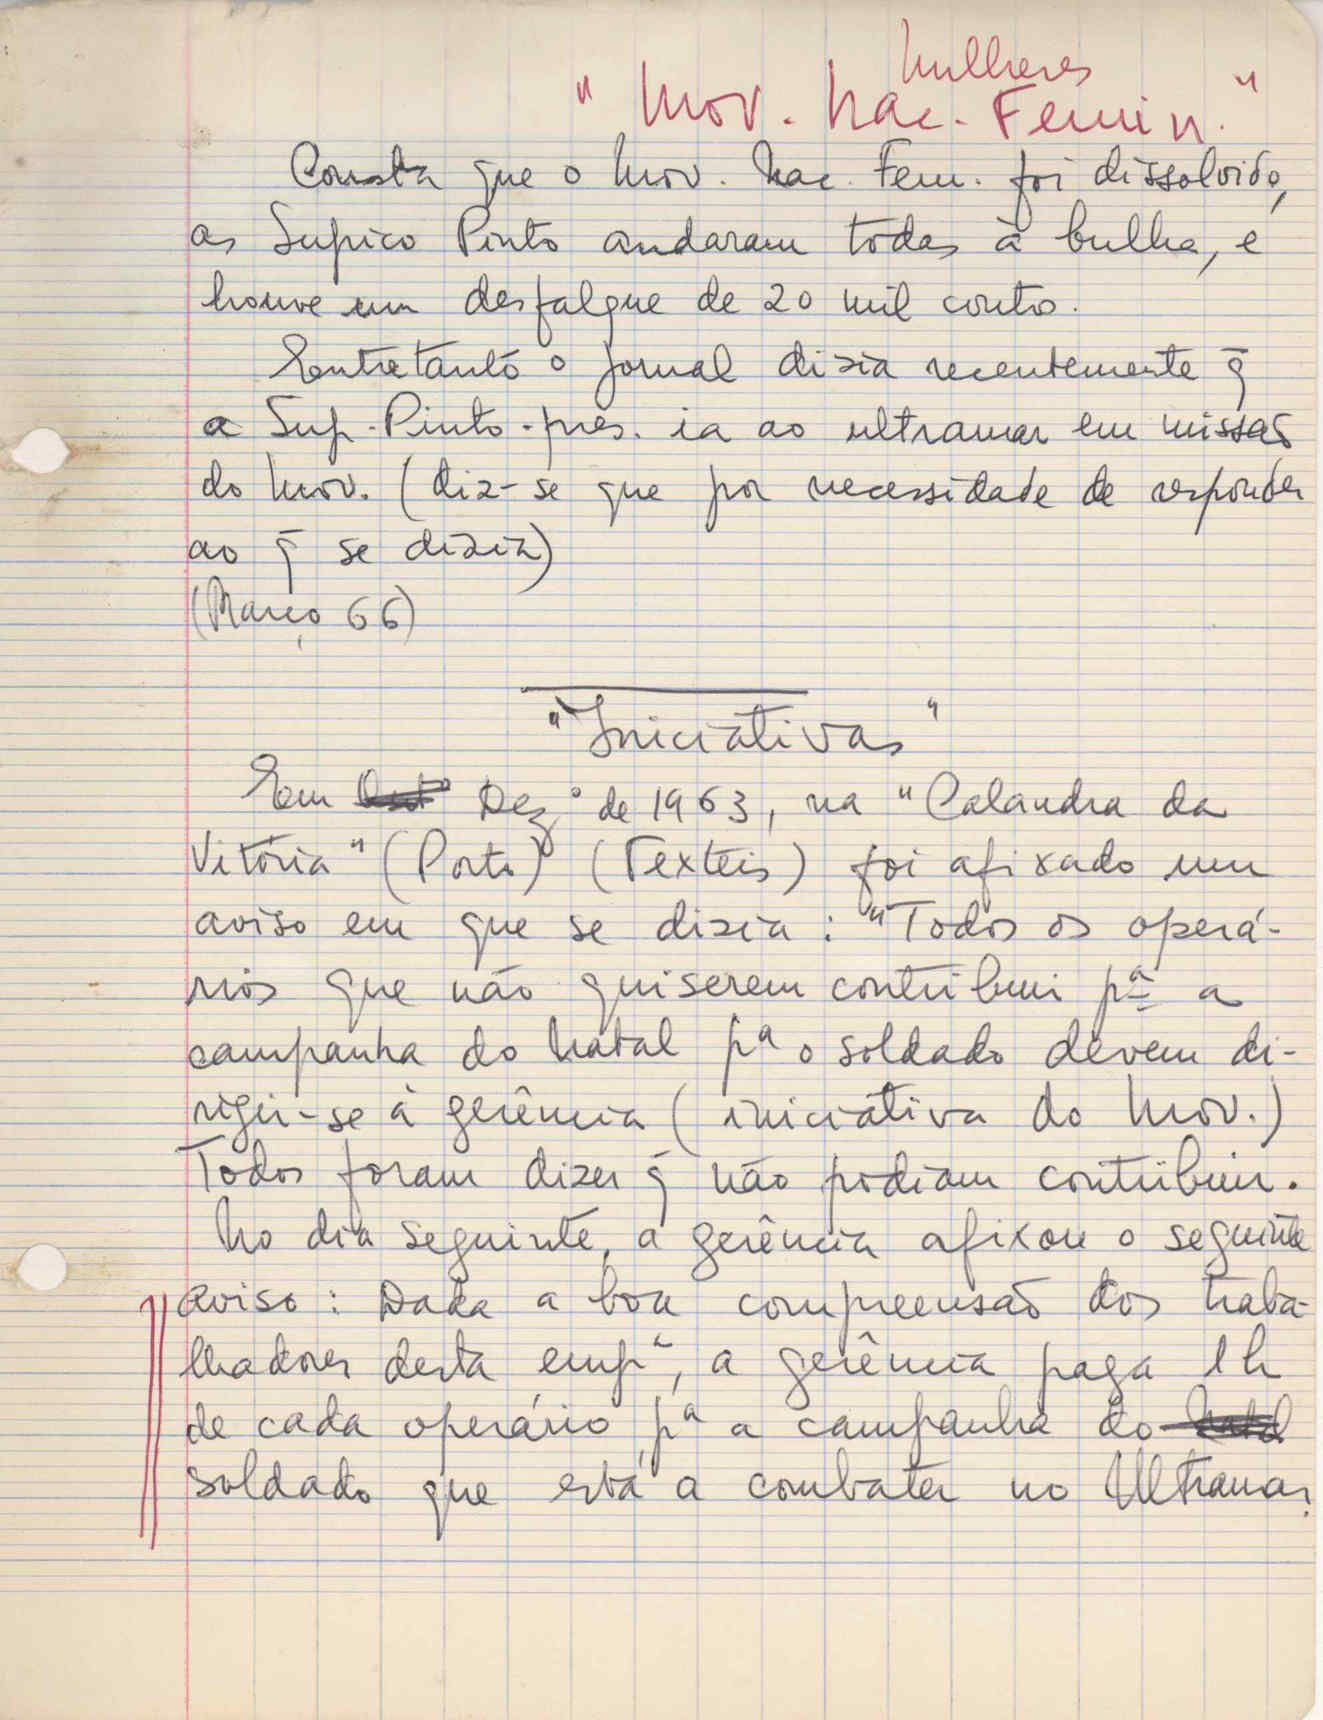 Mulheres
"Mov. Nac. Femin."
Consta que o Mov. Nac. Fem. foi dissolvido,
as Supico Pinto andaram todas à bulha, e
houve um desfalque de 20 mil contos.
Entretanto o jornal dizia recentemente q̄
a Sup. Pinto - pres. ia ao ultramar em missão
do Mov. (diz-se que por necessidade de responder
ao q̄ se dizia)
(Março 66)
"Iniciativas"
Em Dezº de 1963, na "Calandra da
Vitória" (Porto) (Texteis) foi afixado um
aviso em que se dizia: "Todos os operá-
rios que não quiserem contribuir pª a
campanha do Natal pª o soldado devem di-
rigir-se à gerência (iniciativa do Mov.)
Todos foram dizer q̄ não podiam contribuir.
No dia seguinte, a gerência afixou o seguinte
aviso: Dada a boa compreensão dos traba-
lhadores desta empª, a gerência paga 1h
de cada operário pª a campanha do Natal
soldado que está a combater no Ultramar.